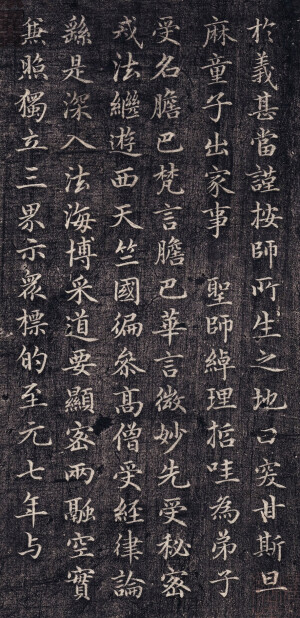 於義甚當謹按師所生之地曰突甘斯旦
麻童子出家事　聖師綽理哲哇為弟子
受名膽巴梵言膽巴華言微妙先受秘密
戒法繼遊西天竺國徧參髙僧受經律論
繇是深入法海博采道要顯密兩融空實
兼照獨立三界示衆標的至元七年与